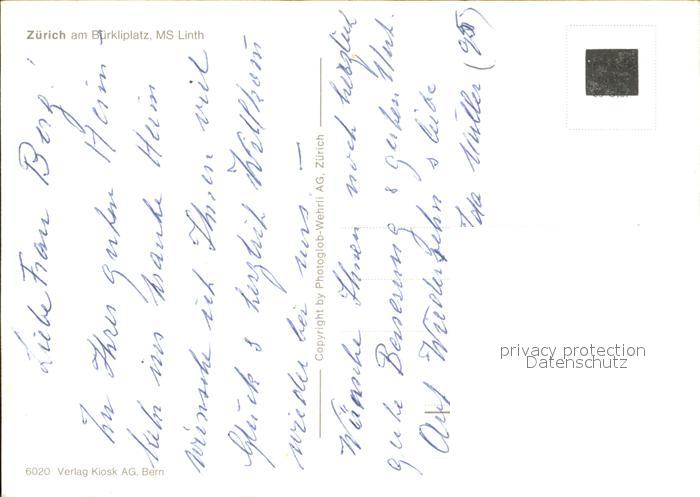 Zürich am Bürkliplatz, MS Linth
Liebe Frau Berg!
In Ihrer guten Heim-
kehr ins traute Heim
wünsche ich Ihnen viel
Glück & herzlich Willkom
wieder bei uns. —
Wünsche Ihnen noch herzlich
gute Besserung & guten Mut.
Auf Wiedersehn & liebe
Ida Müller (95)
Copyright by Photoglob-Wehrli AG, Zürich
privacy protection
Datenschutz
6020 Verlag Kiosk AG, Bern